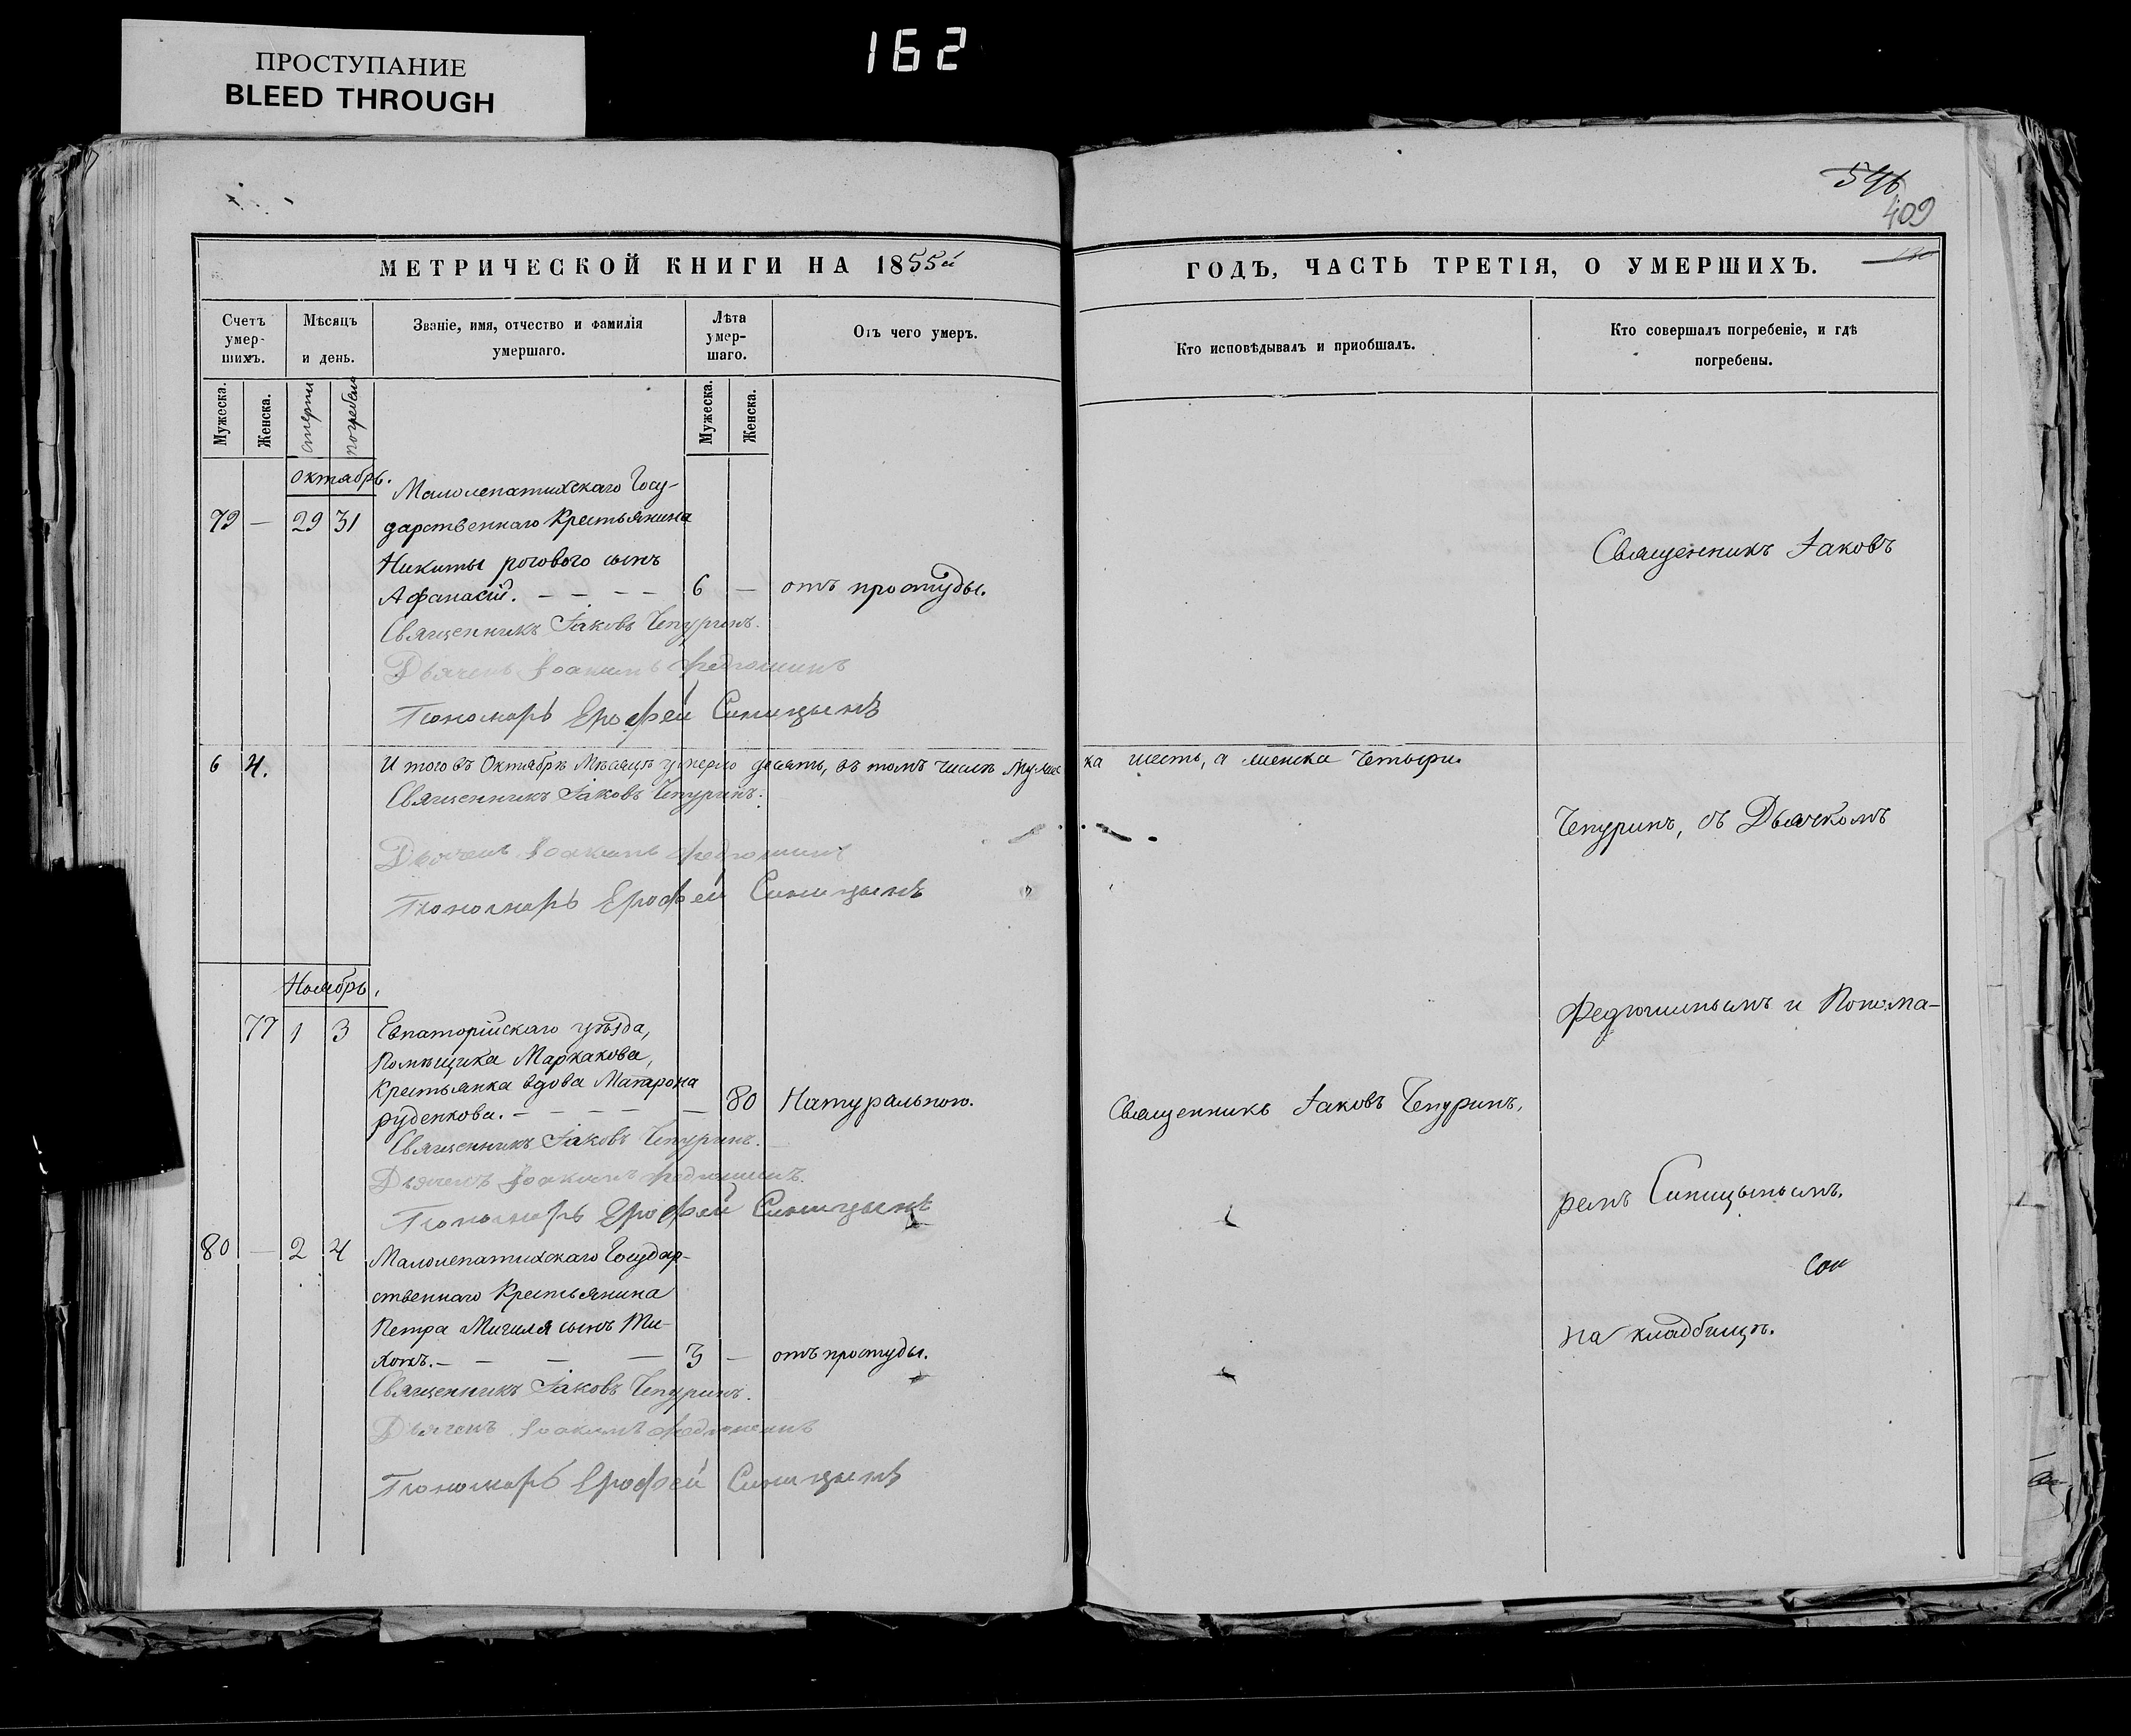 ПРОСТУПАНИЕ
BLEED THROUGH
162
546
409
МЕТРИЧЕСКОЙ КНИГИ НА 1855й
ГОДЪ, ЧАСТЬ ТРЕТІЯ, О УМЕРШИХЪ.
Счетъ умер-шихъ.
Мѣсяцъ и день.
Званіе, имя, отчество и фамилія умершаго.
Лѣта умер-шаго.
Отъ чего умеръ.
Кто исповѣдывалъ и пріобщалъ.
Кто совершалъ погребеніе, и гдѣ погребены.
Мужеска.
Женска.
смерти
погребенія
Мужеска.
Женска.
Октябрь.
Малолепатихскаго Госу-
79 — 29 31 дарственнаго Крестьянина
Никиты рогового сынъ
Афанасій. — — — — 6 — отъ простуды.
Священникъ Іаковъ Чепуринъ.
Дьячекъ Іоакимъ Федюшинъ
Пономарь Ерофей Синицынъ
6 4. Итого въ Октябрѣ Мѣсяцѣ умерло десять, въ томъ числѣ Мужес ка шесть, а женска Четыри.
Священникъ Іаковъ Чепуринъ.
Дьячекъ Іоакимъ Федюшинъ
Пономарь Ерофей Синицынъ
Ноябрь.
77 1 3 Евпаторійскаго уѣзда,
Помѣщика Маркакова,
Крестьянка вдова Матрона
руденкова. — — — — — 80 Натуральною.
Священникъ Іаковъ Чепуринъ.
Священникъ Іаковъ Чепуринъ.
Дьячекъ Іоакимъ Федюшинъ.
Пономарь Ерофей Синицынъ
80 — 2 4 Малолепатихскаго Государ-
ственнаго Крестьянина
Петра Мигиля сынъ Ти-
хонъ. — — — — 3 — отъ простуды.
Священникъ Іаковъ Чепуринъ.
Дьячекъ Іоакимъ Федюшинъ
Пономарь Ерофей Синицынъ
Священникъ Іаковъ
Чепуринъ, съ Дьячкомъ
Федюшинымъ и Понома-
ремъ Синицынымъ.
на кладбищѣ.